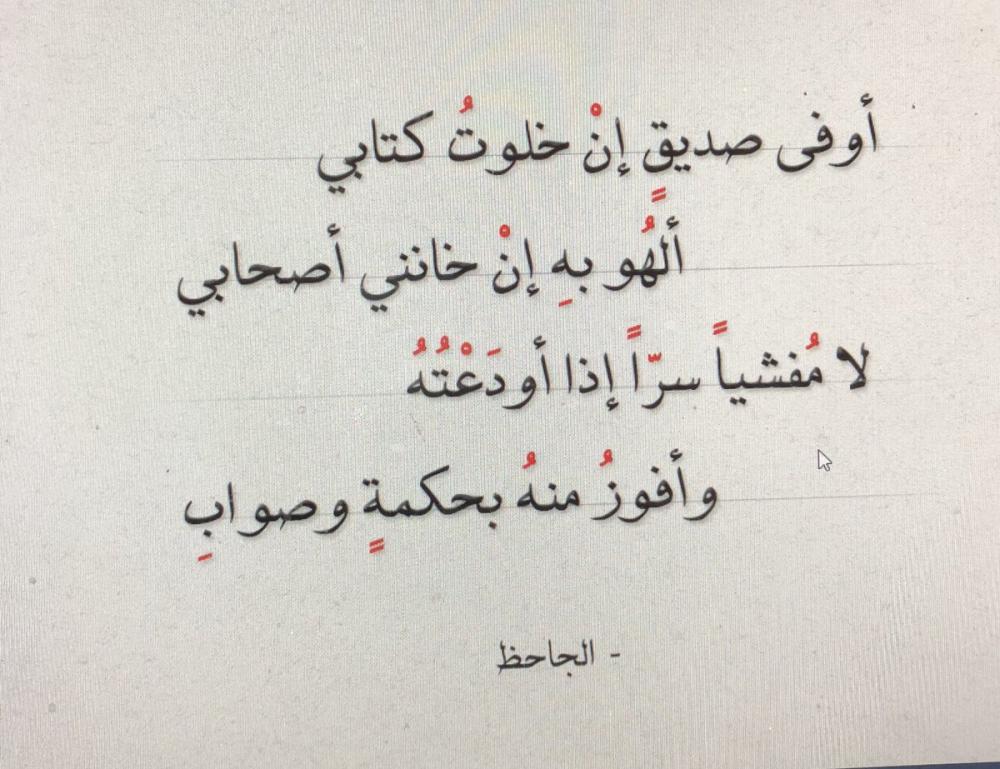 أوفى صديقٍ إنْ خلوتُ كتابي
ألهُو بهِ إنْ خانني أصحابي
لا مُفشياً سرّاً إذا أودَعْتُهُ
وأفوزُ منهُ بحكمةٍ وصوابِ
- الجاحظ